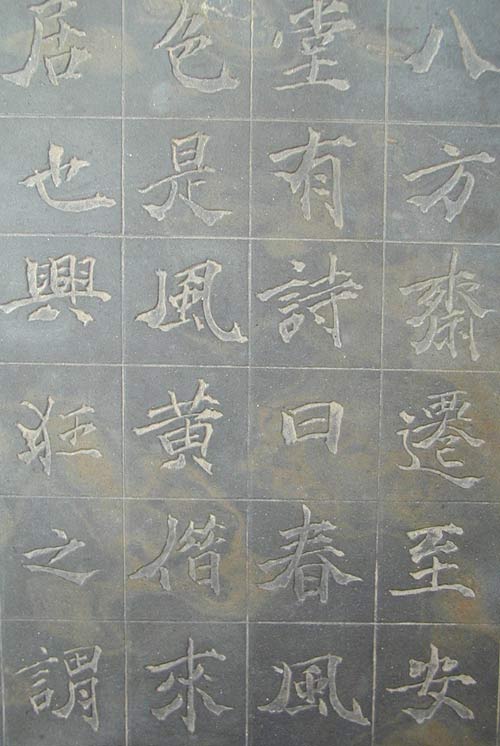 八方齋遷至安
堂有詩曰春風
色是風黄偕來
居也興狂之謂